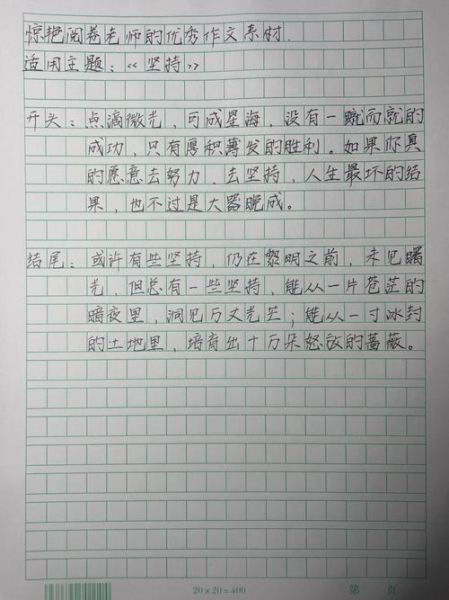 惊艳阅卷老师的优秀作文素材.
适用主题：《坚持》
开头：点滴微光，可成星海，没有一蹴而就的
成功，只有厚积薄发的胜利。如果你真
的愿意去努力、去坚持，人生最坏的结
果，也不过是大器晚成。
结尾：或许有些坚持，仍在黎明之前，未见曙
光，但总有一些坚持，能从一片苍茫的
暗夜里，洞见万丈光芒；能从一寸冰封
的土地里，培育出十万朵怒放的蔷薇。
20×20=400
第 页